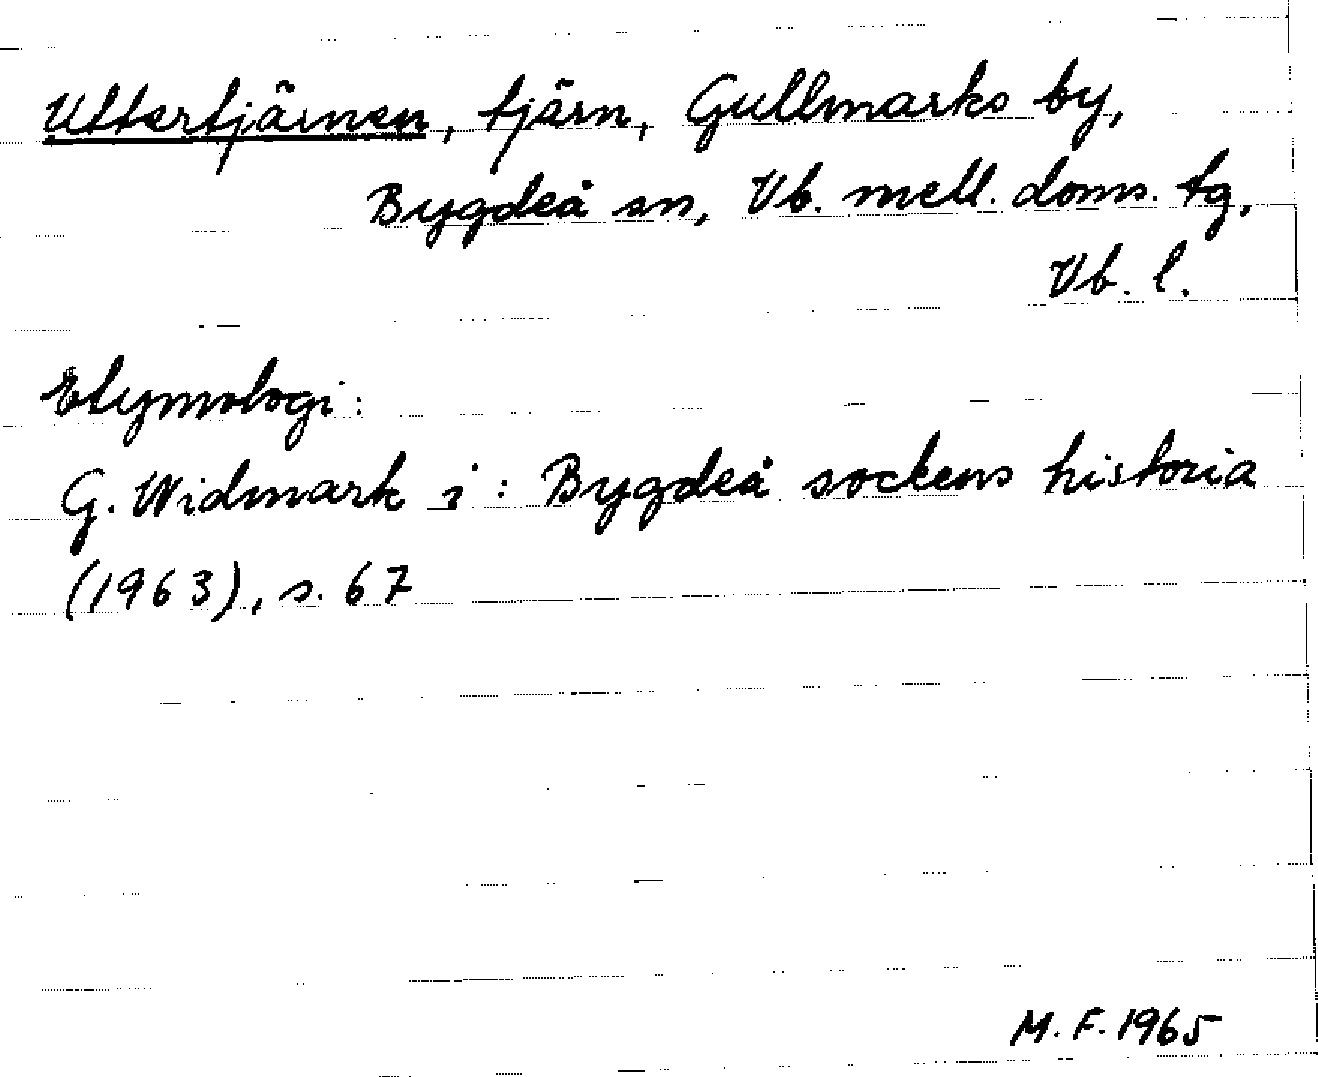 Uttertjärnen, tjärn, Gullmarks by,
Bygdeå sn, Vb. mell. doms. tg,
Vb. l.
Etymologi:
G. Widmark i: Bygdeå sockens historia
(1963), s. 67
M. F. 1965